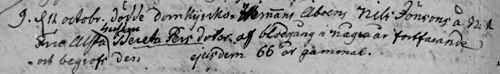 9. d 11 octobr. dödde domkyrko-      Aboens, Nils Jonsons å N: 1
hustru Bereta Pers doter. aff blodgång i några år fortfarande
och begrofs den      ejusdem 66 år gammal.